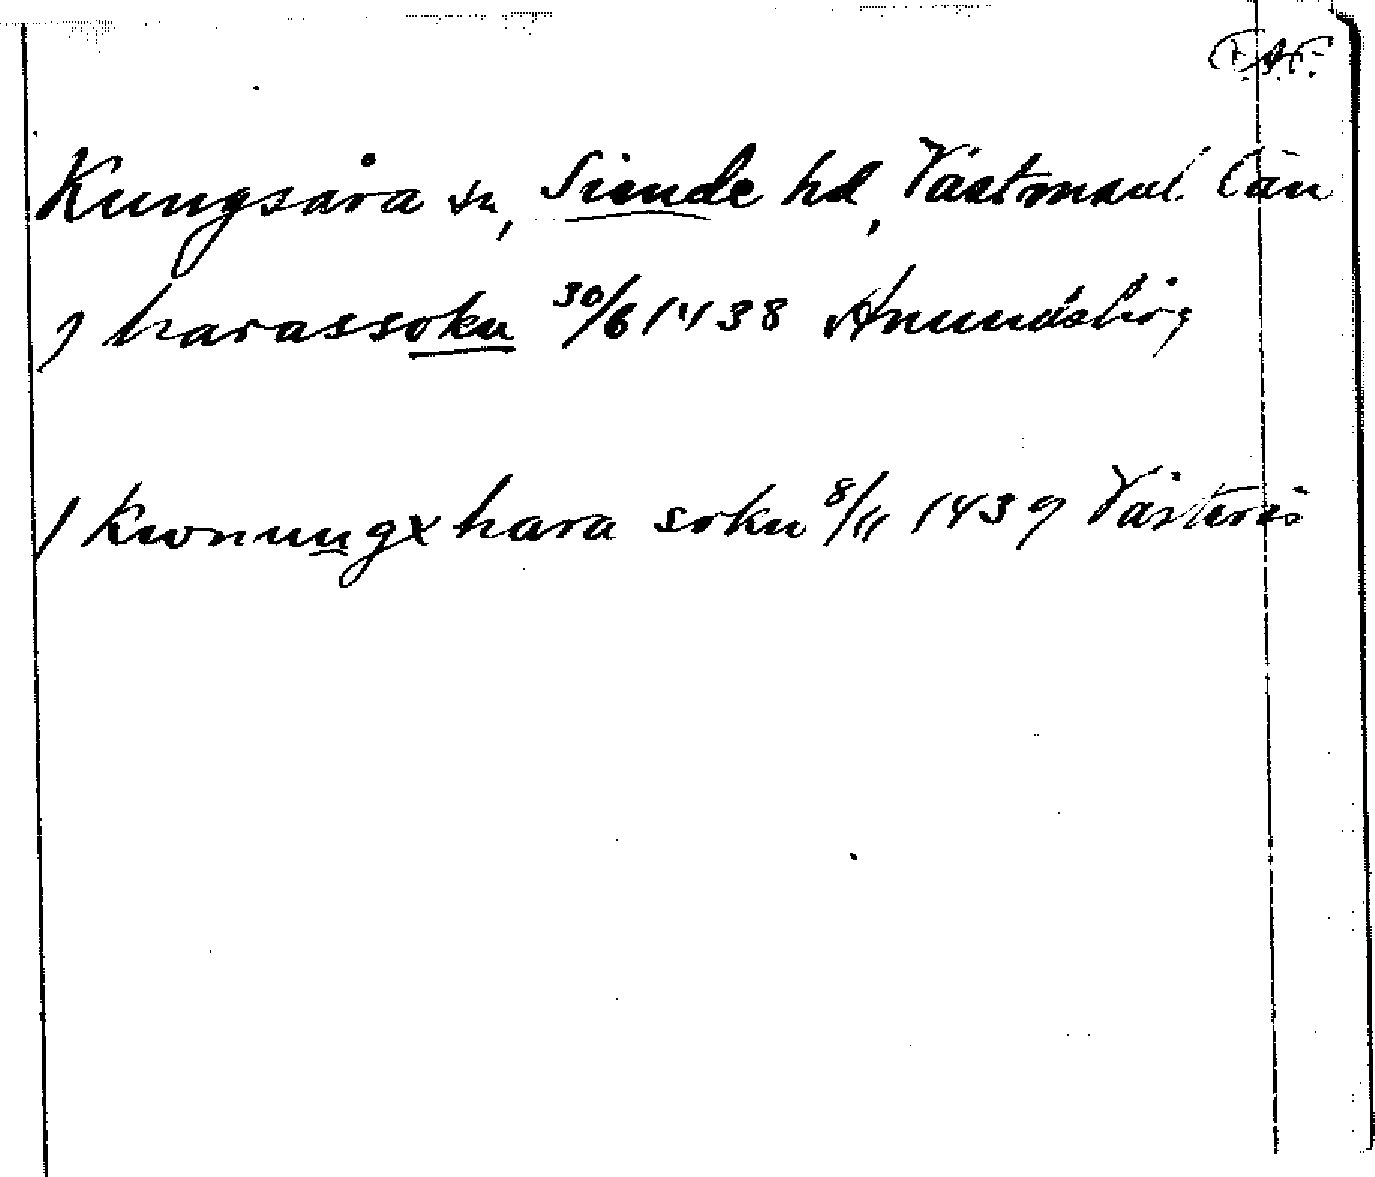 F.A.F.
Kungsåra sn, Siende hd, Västmanl. län
J harassokn 30/6 1438 Anundshög
J Kwonungx hara sokn 8/11 1439 Västerås